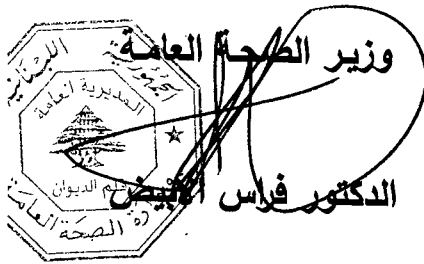 وزير الصحة العامة
الدكتور فراس الأبيض
الجمهورية اللبنانية
المديرية العامة
قلم الديوان
وزارة الصحة العامة